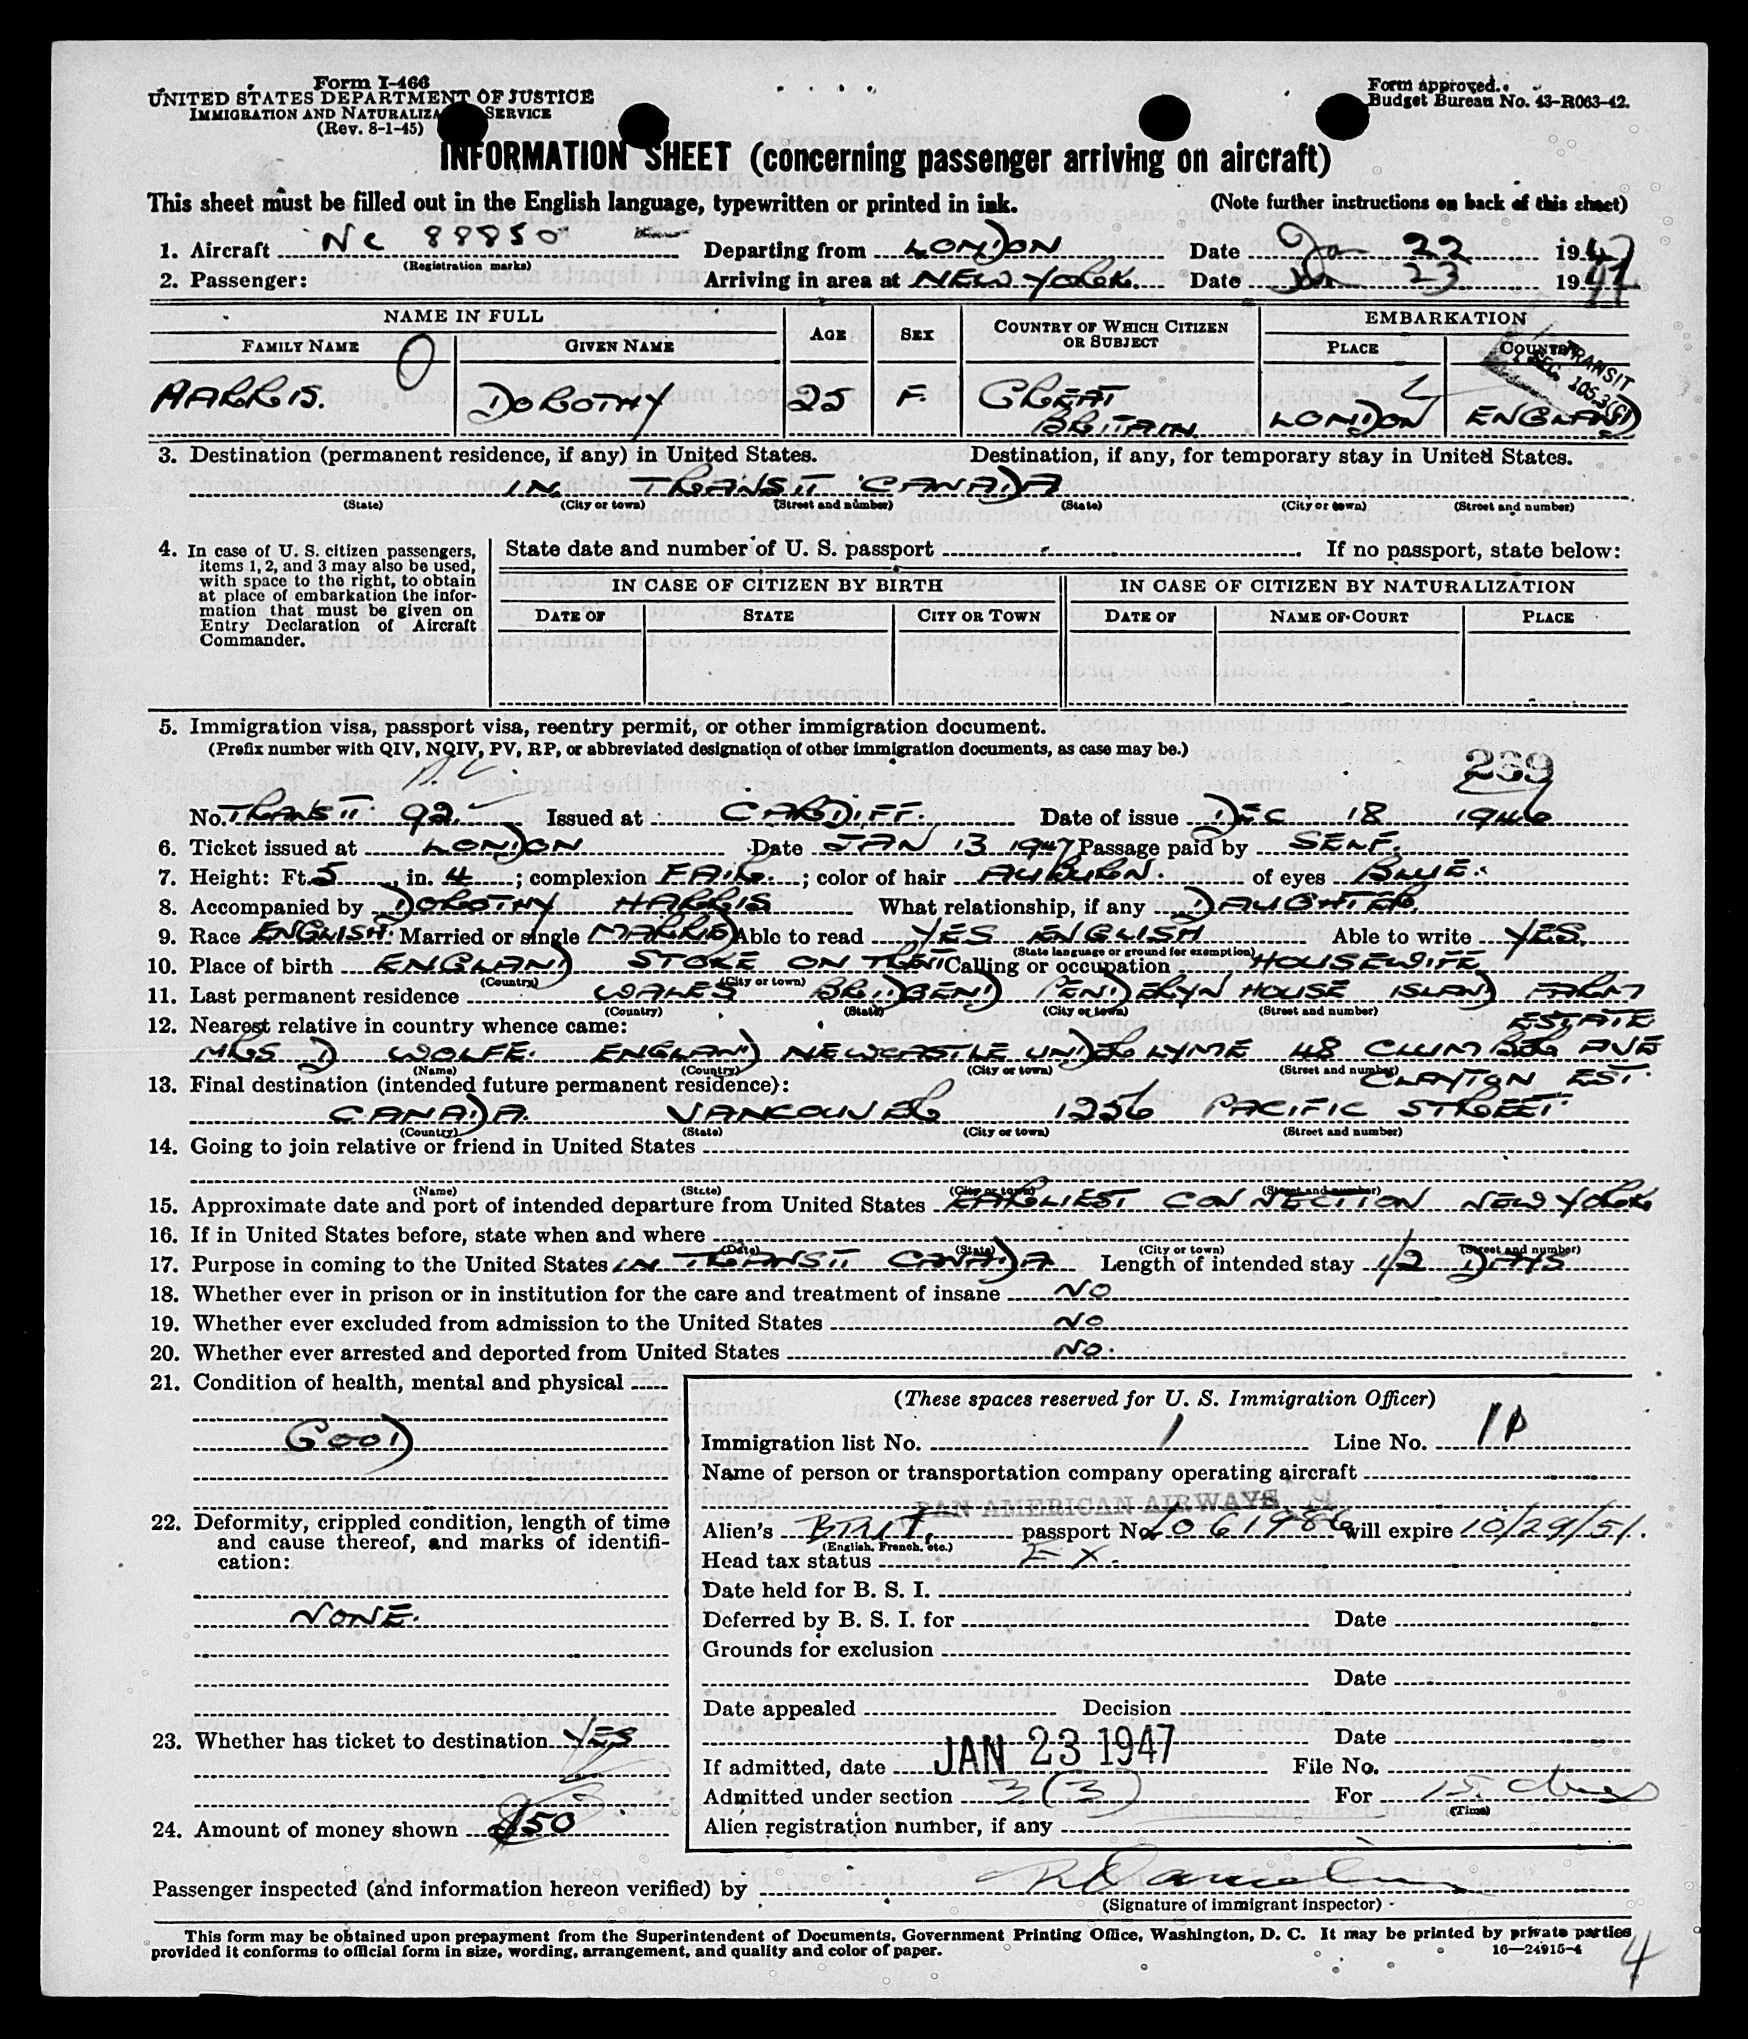 Form I-466
UNITED STATES DEPARTMENT OF JUSTICE
IMMIGRATION AND NATURALIZA SERVICE
(Rev. 8-1-45)
Form approved.
Budget Bureau No. 43-R063-42.
INFORMATION SHEET (concerning passenger arriving on aircraft)
This sheet must be filled out in the English language, typewritten or printed in ink. (Note further instructions on back of this sheet)
1. Aircraft NC 88850 Departing from LONDON Date Jan 22 1947
(Registration marks)
2. Passenger: Arriving in area at NEW YORK. Date Jan 23 1947
NAME IN FULL AGE SEX COUNTRY OF WHICH CITIZEN OR SUBJECT EMBARKATION
FAMILY NAME GIVEN NAME PLACE COUNTRY
TRANSIT
SEC. 105.3(C)
HARRIS. DOROTHY 25 F. GREAT BRITAIN LONDON ENGLAND
3. Destination (permanent residence, if any) in United States. Destination, if any, for temporary stay in United States.
IN TRANSIT CANADA
(State) (City or town) (Street and number) (State) (City or town) (Street and number)
4. In case of U. S. citizen passengers, items 1, 2, and 3 may also be used, with space to the right, to obtain at place of embarkation the information that must be given on Entry Declaration of Aircraft Commander.
State date and number of U. S. passport . If no passport, state below:
IN CASE OF CITIZEN BY BIRTH IN CASE OF CITIZEN BY NATURALIZATION
DATE OF STATE CITY OR TOWN DATE OF NAME OF COURT PLACE
5. Immigration visa, passport visa, reentry permit, or other immigration document.
(Prefix number with QIV, NQIV, PV, RP, or abbreviated designation of other immigration documents, as case may be.)
269
No. TRANSIT 92 Issued at CARDIFF. Date of issue DEC 18 1946
6. Ticket issued at LONDON Date JAN 13 1947 Passage paid by SELF.
7. Height: Ft. 5, in. 4; complexion FAIR.; color of hair AUBURN. of eyes BLUE.
8. Accompanied by DOROTHY HARRIS What relationship, if any DAUGHTER.
9. Race ENGLISH. Married or single MARRIED Able to read YES ENGLISH Able to write YES.
(State language or ground for exemption)
10. Place of birth ENGLAND STOKE ON TRENT Calling or occupation HOUSEWIFE
(Country) (City or town)
11. Last permanent residence WALES BRIDGEND PENDERYN HOUSE ISLAND FARM
(Country) (State) (City or town) (Street and number)
ESTATE
12. Nearest relative in country whence came:
MRS D WOLFE. ENGLAND NEWCASTLE UNDER LYME 48 CLUMBER AVE
(Name) (Country) (City or town) (Street and number)
CLAYTON EST.
13. Final destination (intended future permanent residence):
CANADA. VANCOUVER 1256 PACIFIC STREET.
(Country) (State) (City or town) (Street and number)
14. Going to join relative or friend in United States
(Name) (State) (City or town) (Street and number)
15. Approximate date and port of intended departure from United States EARLIEST CONNECTION NEW YORK
16. If in United States before, state when and where
(Date) (State) (City or town) (Street and number)
17. Purpose in coming to the United States IN TRANSIT CANADA Length of intended stay 1/2 DAYS
18. Whether ever in prison or in institution for the care and treatment of insane NO
19. Whether ever excluded from admission to the United States NO
20. Whether ever arrested and deported from United States NO.
21. Condition of health, mental and physical
GOOD
22. Deformity, crippled condition, length of time and cause thereof, and marks of identification:
NONE.
23. Whether has ticket to destination YES
24. Amount of money shown $50
(These spaces reserved for U. S. Immigration Officer)
Immigration list No. 1 Line No.
Name of person or transportation company operating aircraft
PAN AMERICAN AIRWAYS
Alien's BRIT. passport No. 1061986 will expire 10/29/51.
(English, French, etc.)
Head tax status EX.
Date held for B. S. I.
Deferred by B. S. I. for Date
Grounds for exclusion
Date
Date appealed Decision
Date
If admitted, date JAN 23 1947 File No.
Admitted under section 3(3) For 15 days
(Time)
Alien registration number, if any
Passenger inspected (and information hereon verified) by
(Signature of immigrant inspector)
This form may be obtained upon prepayment from the Superintendent of Documents, Government Printing Office, Washington, D. C. It may be printed by private parties
provided it conforms to official form in size, wording, arrangement, and quality and color of paper. 16—24915-4
4